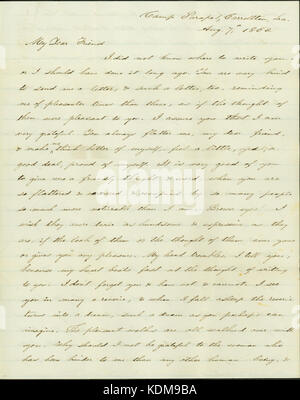 Camp Parapet, Carrollton, La.
Aug. 7th 1862
My Dear Friend
I did not know where to write you,
or I should have done it long ago. You are very kind
to send me a letter, & such a letter, too, reminding
me of pleasanter times than these, as if the thought of
them were pleasant to you. I assure you that I am
very grateful. You always flatter me, my dear friend,
& make me think better of myself. Not a little, yes, a
good deal, proud of myself. It is very good of you
to give me a friend, when you are
so flattered & by so many people
so much more noticeable than I am. Brown eyes! I
wish they were twice as handsome & expressive as they
are, if the look of them or the thought of them can give
or gives you any pleasure. My hand trembles, I tell you,
because my heart beats fast at the thought of writing
to you. I don't forget you & have not & cannot. I see
you in many a reverie, & when I fall asleep the reverie
turns into a dream, such a dream as you perhaps can
imagine. The pleasant walks are all walked over with
you. Why should I not be grateful to the woman who
has been kinder to me than any other human being, &
alamy
KDM9BA